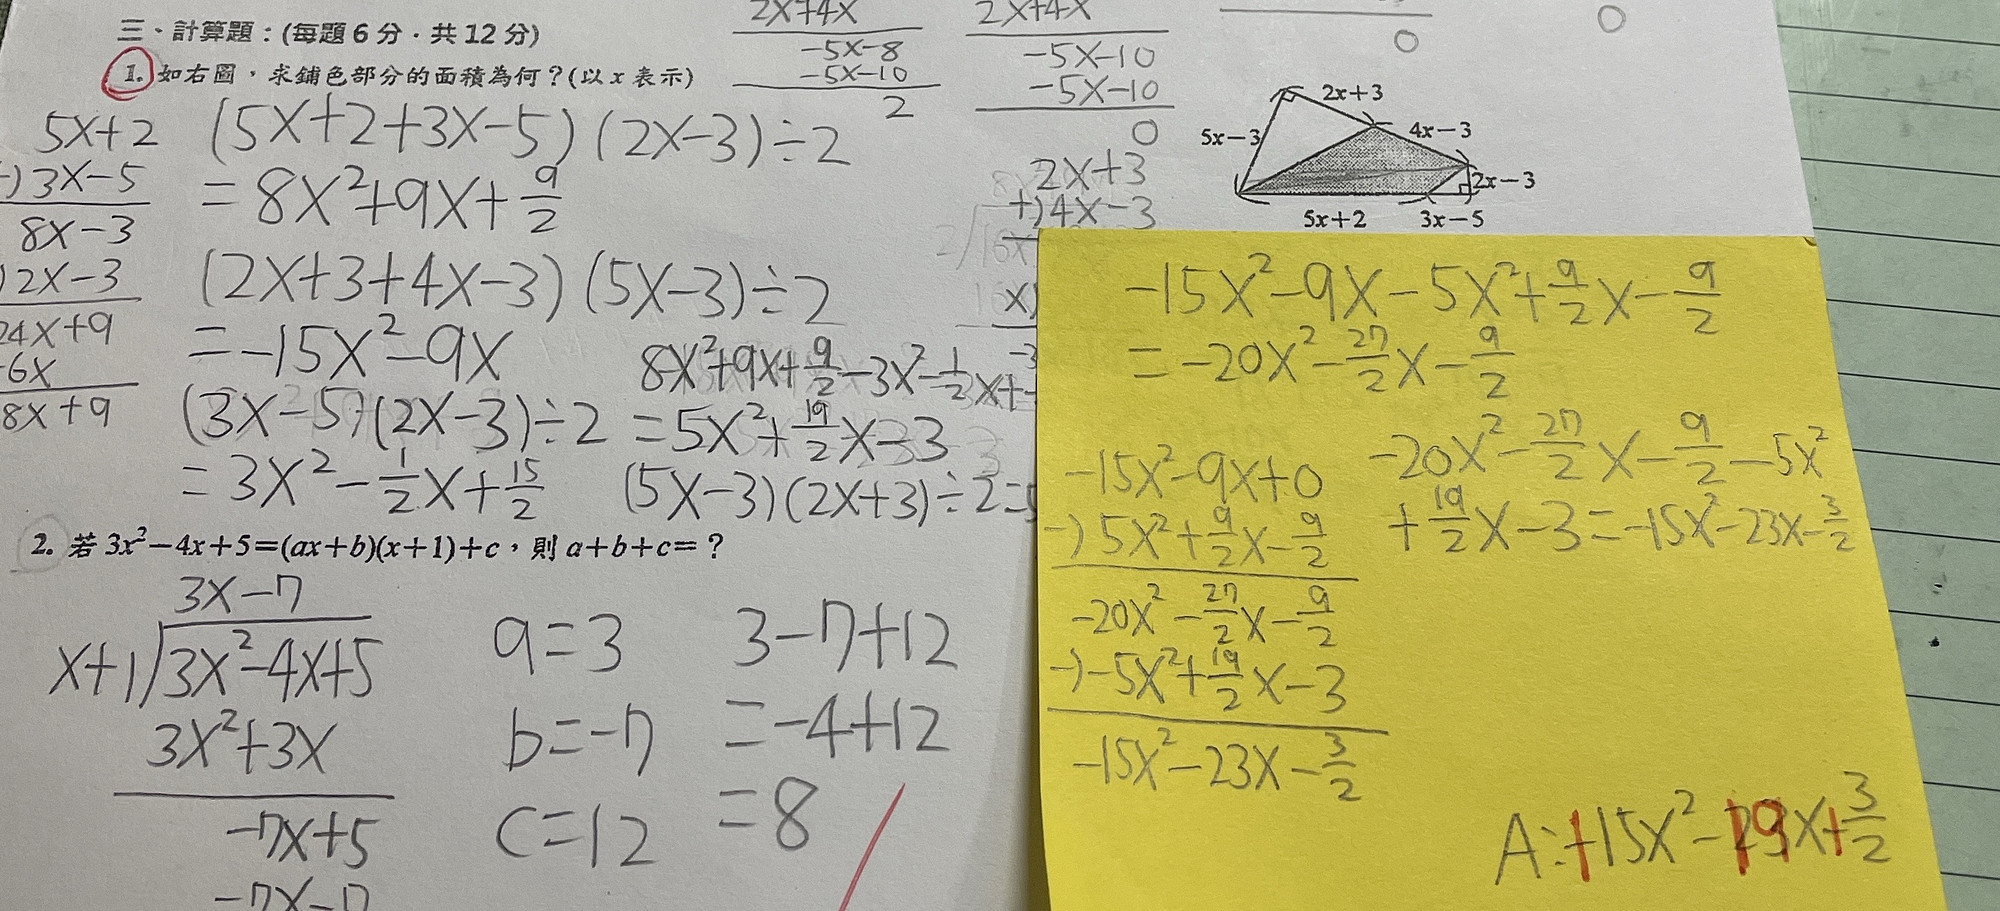 三、計算題：(每題6分，共12分)
1. 如右圖，求鋪色部分的面積為何？(以x表示)
2x+4x
-5x-8
-5x-10
2
2x+4x
-5x-10
-5x-10
0
0
0
2x+3
4x-3
5x-3
2x-3
5x+2
3x-5
5x+2
-)3x-5
8x-3
)2x-3
24x+9
-6x
8x+9
(5x+2+3x-5)(2x-3)÷2
=8x²+9x+9/2
(2x+3+4x-3)(5x-3)÷2
=-15x²-9x
(3x-5)(2x-3)÷2
=3x²-1/2x+15/2
2x+3
+)4x-3
8x²+9x+9/2-3x²-1/2x+
=5x²+19/2x-3
(5x-3)(2x+3)÷2=5
-15x²-9x-5x²+9/2x-9/2
=-20x²-27/2x-9/2
-15x²-9x+0
-)5x²+9/2x-9/2
-20x²-27/2x-9/2
-)-5x²+19/2x-3
-15x²-23x-3/2
-20x²-27/2x-9/2-5x²
+19/2x-3=-15x²-23x-3/2
2. 若3x²-4x+5=(ax+b)(x+1)+c，則a+b+c=？
3x-7
x+1)3x²-4x+5
3x²+3x
-7x+5
-7x-7
a=3
b=-7
c=12
3-7+12
=-4+12
=8